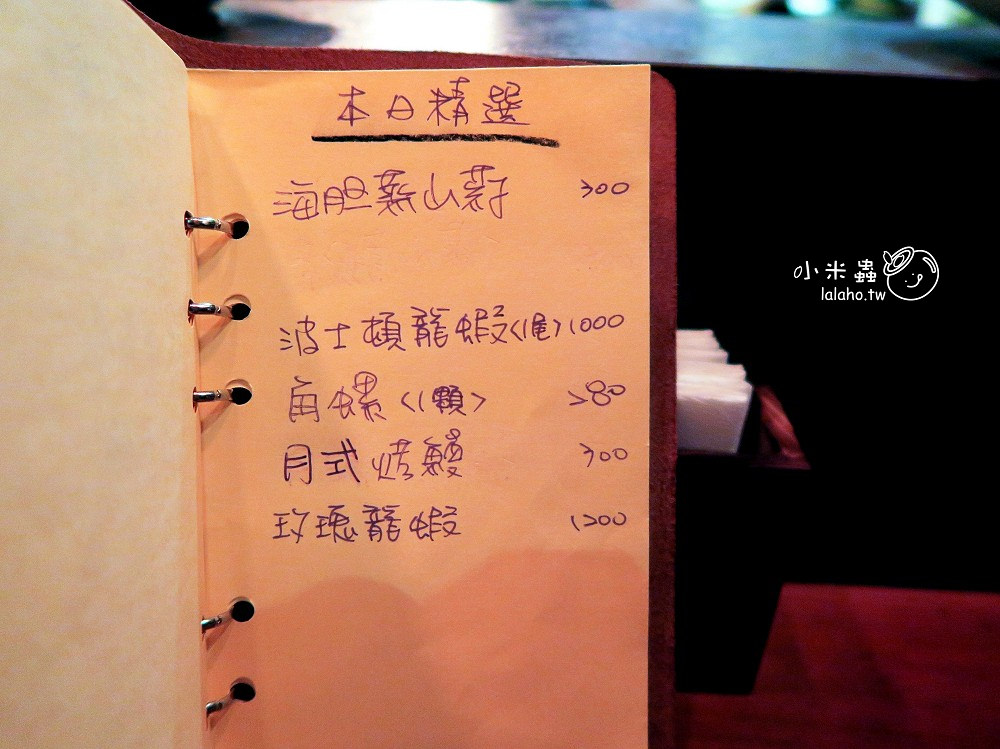 本日精選
海胆蒸山葯 300
波士頓龍蝦<1尾>1000
角螺<1顆> 280
月式烤鰻 300
玫瑰龍蝦 1200
小米蟲
lalaho.tw